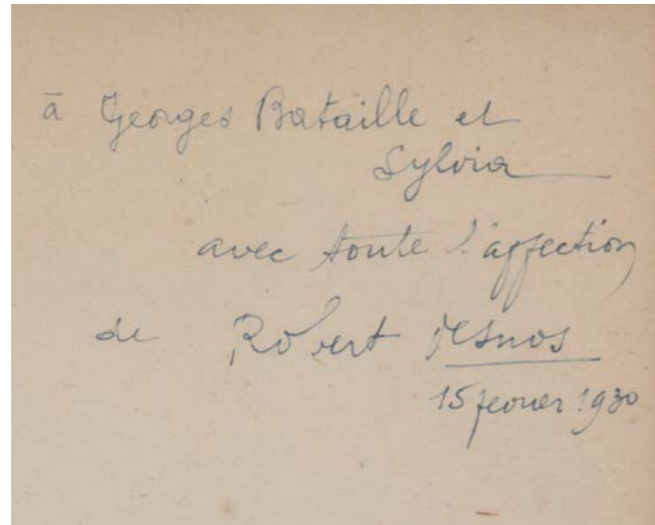 à Georges Bataille et
Sylvia
avec toute l'affection
de Robert Desnos
15 fevrier 1930